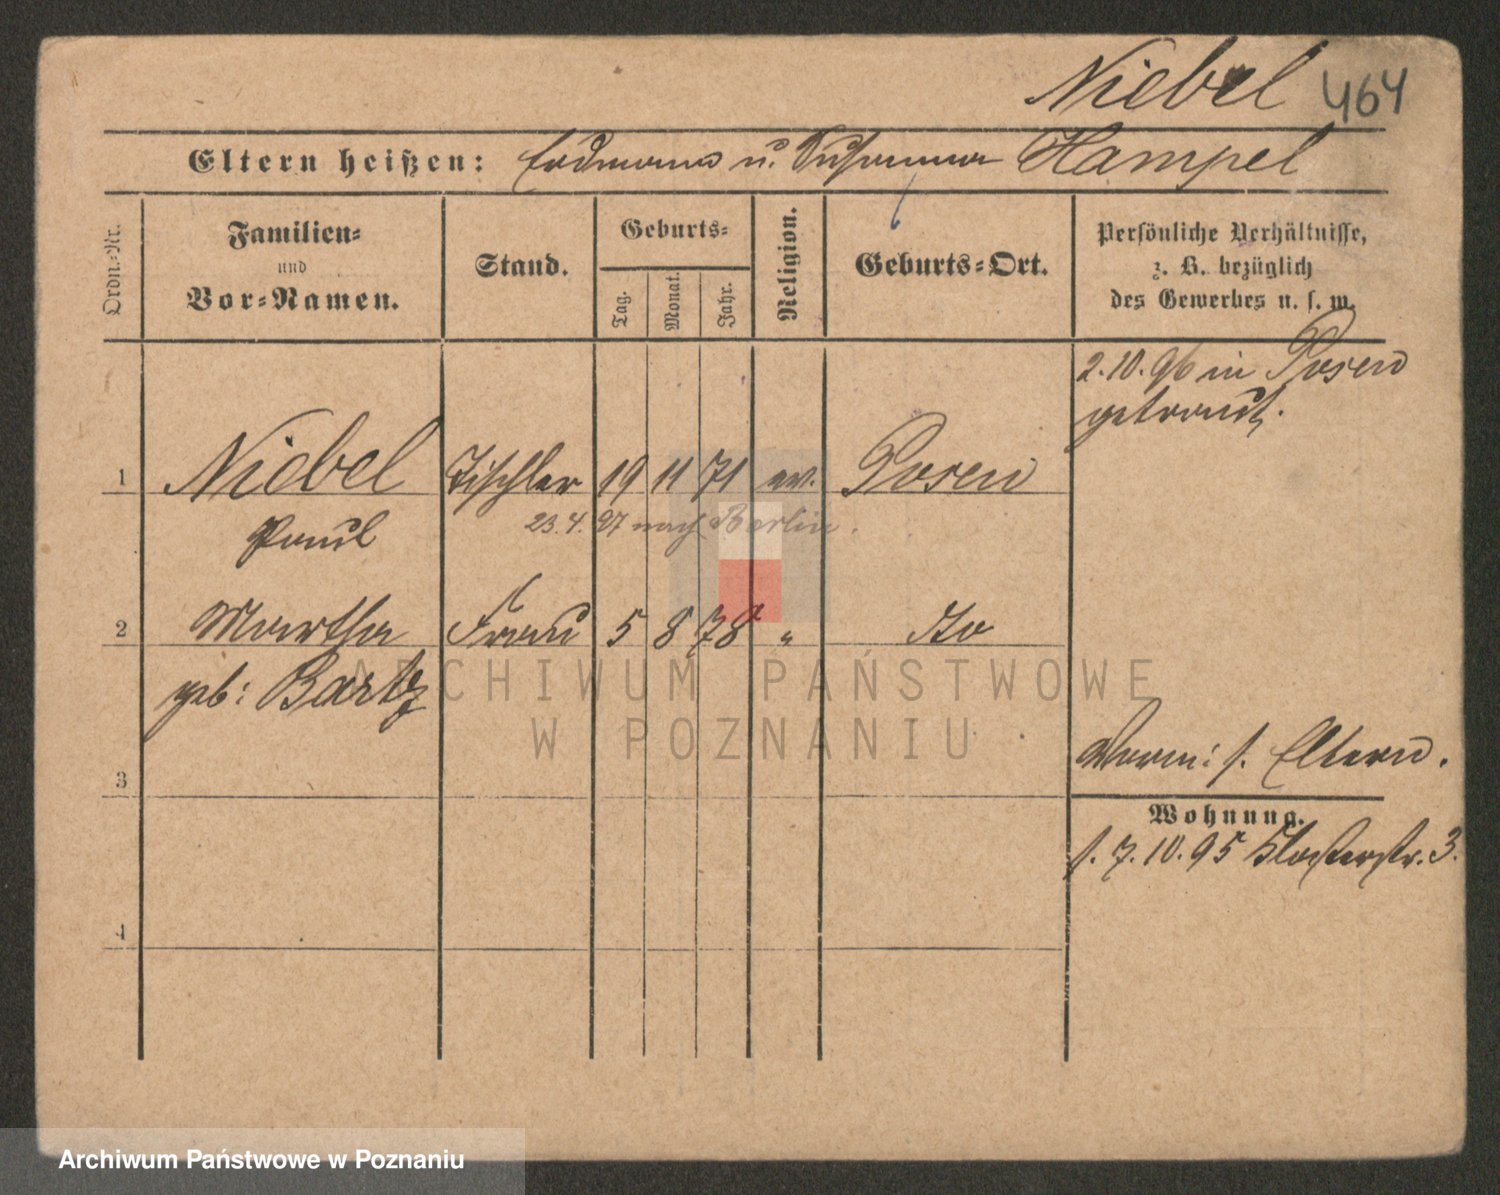 Niebel 464
Eltern heißen: Erdmann u. Susanna Hampel
Ordn.-Nr.
Familien-
und
Vor-Namen.
Stand.
Geburts-
Tag.
Monat.
Jahr.
Religion.
Geburts-Ort.
Persönliche Verhältnisse,
z. B. bezüglich
des Gewerbes u. s. w.
2.10.96 in Posen
getraut.
1 Niebel Tischler 19 11 71 ev. Posen
23.4.97 nach Berlin.
Paul
2 Martha Frau 5 8 78 " do
geb: Bartz
ARCHIWUM PAŃSTWOWE
W POZNANIU
Vorm: s. Eltern.
3
Wohnung.
s. 7.10.95 Klosterstr. 3.
4
Archiwum Państwowe w Poznaniu